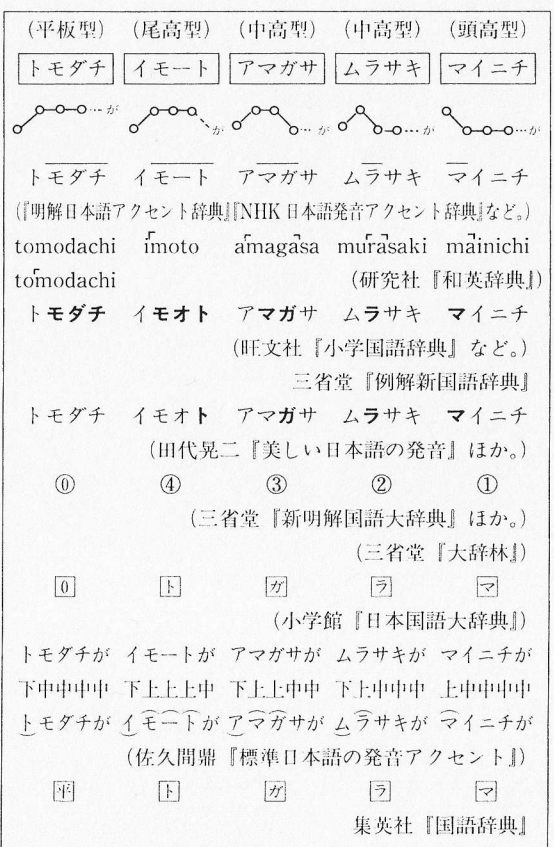 (平板型) (尾高型) (中高型) (中高型) (頭高型)
トモダチ イモート アマガサ ムラサキ マイニチ
が が が が が
トモダチ イモート アマガサ ムラサキ マイニチ
(『明解日本語アクセント辞典』『NHK 日本語発音アクセント辞典』など。)
tomodachi imoto amagasa murasaki mainichi
tomodachi (研究社『和英辞典』)
トモダチ イモオト アマガサ ムラサキ マイニチ
(旺文社『小学国語辞典』など。)
三省堂『例解新国語辞典』
トモダチ イモオト アマガサ ムラサキ マイニチ
(田代晃二『美しい日本語の発音』ほか。)
⓪ ④ ③ ② ①
(三省堂『新明解国語大辞典』ほか。)
(三省堂『大辞林』)
0 ト ガ ラ マ
(小学館『日本国語大辞典』)
トモダチが イモートが アマガサが ムラサキが マイニチが
下中中中中 下上上上中 下上上中中 下上中中中 上中中中中
トモダチが イモートが アマガサが ムラサキが マイニチが
(佐久間鼎『標準日本語の発音アクセント』)
平 ト ガ ラ マ
集英社『国語辞典』